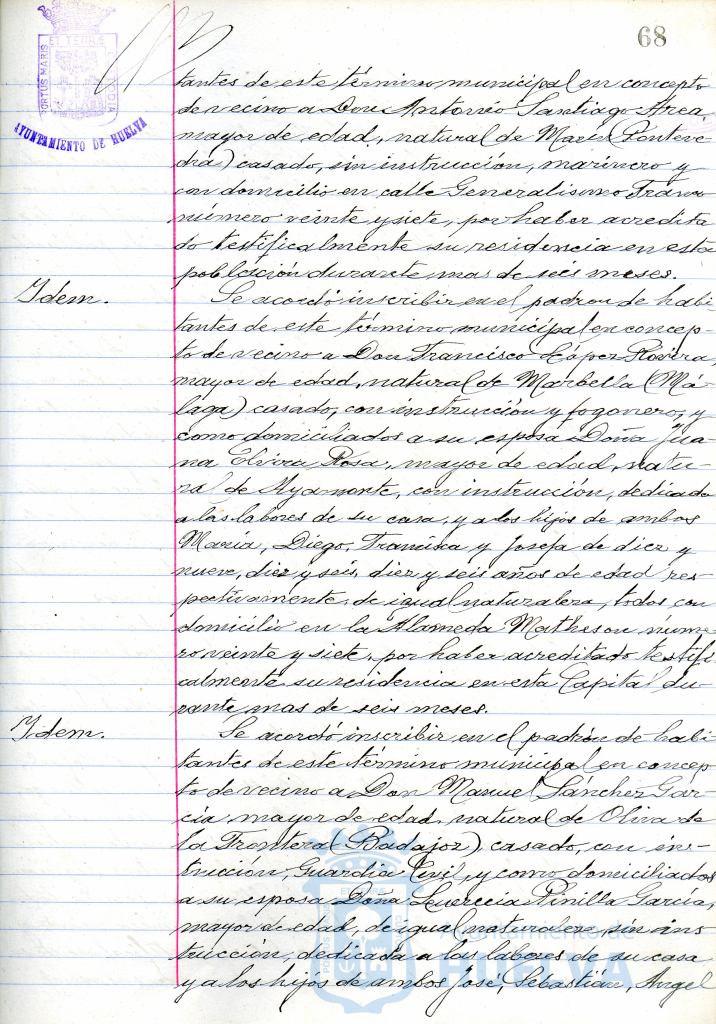 68
PORTUS MARIS
ET TERRÆ
CUSTODIA
AYUNTAMIENTO DE HUELVA
tantes de este término municipal en concepto
de vecino a Don Antonio Santiago Area,
mayor de edad, natural de Marín (Ponteve-
dra) casado, sin instrucción, marinero y
con domicilio en calle Generalísimo Franco
número veinte y siete, por haber acredita
do testificalmente su residencia en esta
población durante mas de seis meses.
Idem.
Se acordó inscribir en el padrón de habi-
tantes de este término municipal en concep-
to de vecino a Don Francisco López Rovira,
mayor de edad, natural de Marbella (Má-
laga) casado, con instrucción y fogonero, y
como domiciliados a su esposa Doña Jua
na Elvira Rosa, mayor de edad, natu-
ral de Ayamonte, con instrucción, dedicada
a las labores de su casa, y a los hijos de ambos
María, Diego, Francisca y Josefa de diez y
nueve, diez y seis, diez y seis años de edad res-
pectivamente, de igual naturaleza, todos con
domicilio en la Alameda Matheson núme-
ro veinte y siete, por haber acreditado testifi-
calmente su residencia en esta Capital du-
rante mas de seis meses.
Idem.
Se acordó inscribir en el padrón de habi-
tantes de este término municipal en concep-
to de vecino a Don Manuel Sánchez Gar-
cía mayor de edad, natural de Oliva de
la Frontera (Badajoz), casado, con ins-
trucción, Guardia Civil, y como domiciliados
a su esposa Doña Lucrecia Pinilla García,
mayor de edad, de igual naturaleza, sin ins
trucción, dedicada a las labores de su casa
y a los hijos de ambos José, Sebastián, Angel
Ayuntamiento de
HUELVA